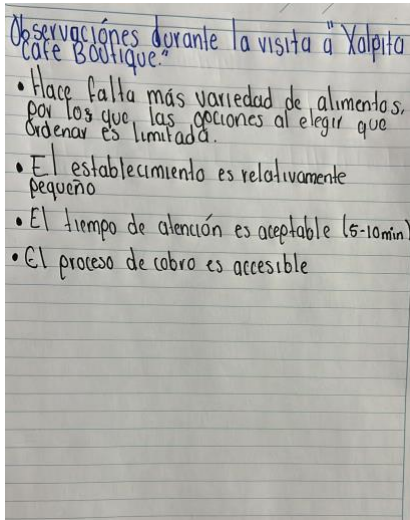 Observaciones durante la visita a "Xalpita
Cafe Boutique."
• Hace falta más variedad de alimentos,
por los que, las opciones al elegir que
ordenar es limitada.
• El establecimiento es relativamente
pequeño
• El tiempo de atención es aceptable (5-10min)
• El proceso de cobro es accesible